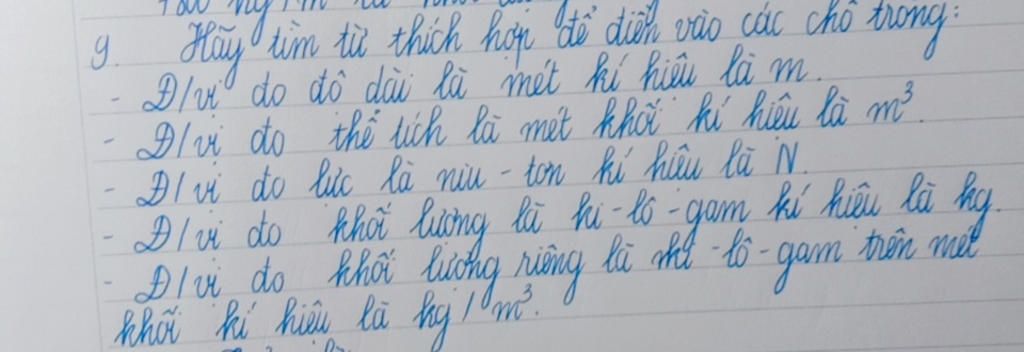 9. Hãy tìm từ thích hợp để điền vào các chỗ trống:
- Đ/vị đo độ dài là mét kí hiệu là m.
- Đ/vị đo thể tích là mét khối kí hiệu là m³.
- Đ/vị đo lực là niu-tơn kí hiệu là N.
- Đ/vị đo khối lượng là ki-lô-gam kí hiệu là kg.
- Đ/vị đo khối lượng riêng là ki-lô-gam trên mét
khối kí hiệu là kg/m³.